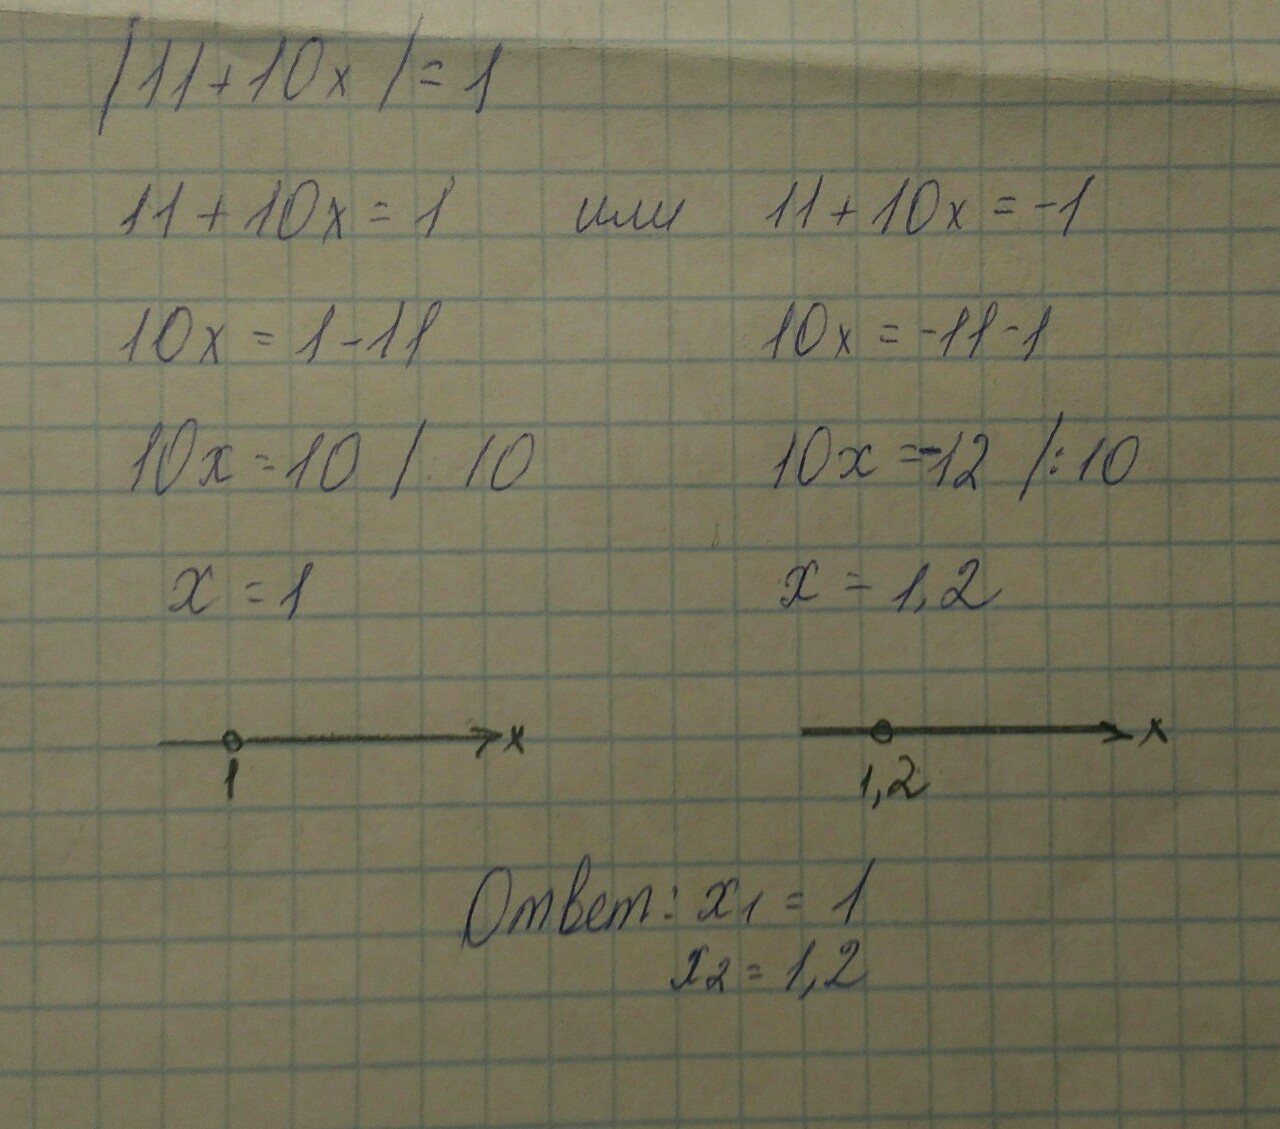 |11+10x|=1
11+10x=1 или 11+10x=-1
10x=1-11 10x=-11-1
10x=10 |:10 10x=-12 |:10
x=1 x=1,2
1 x 1,2 x
Ответ: x₁=1
x₂=1,2